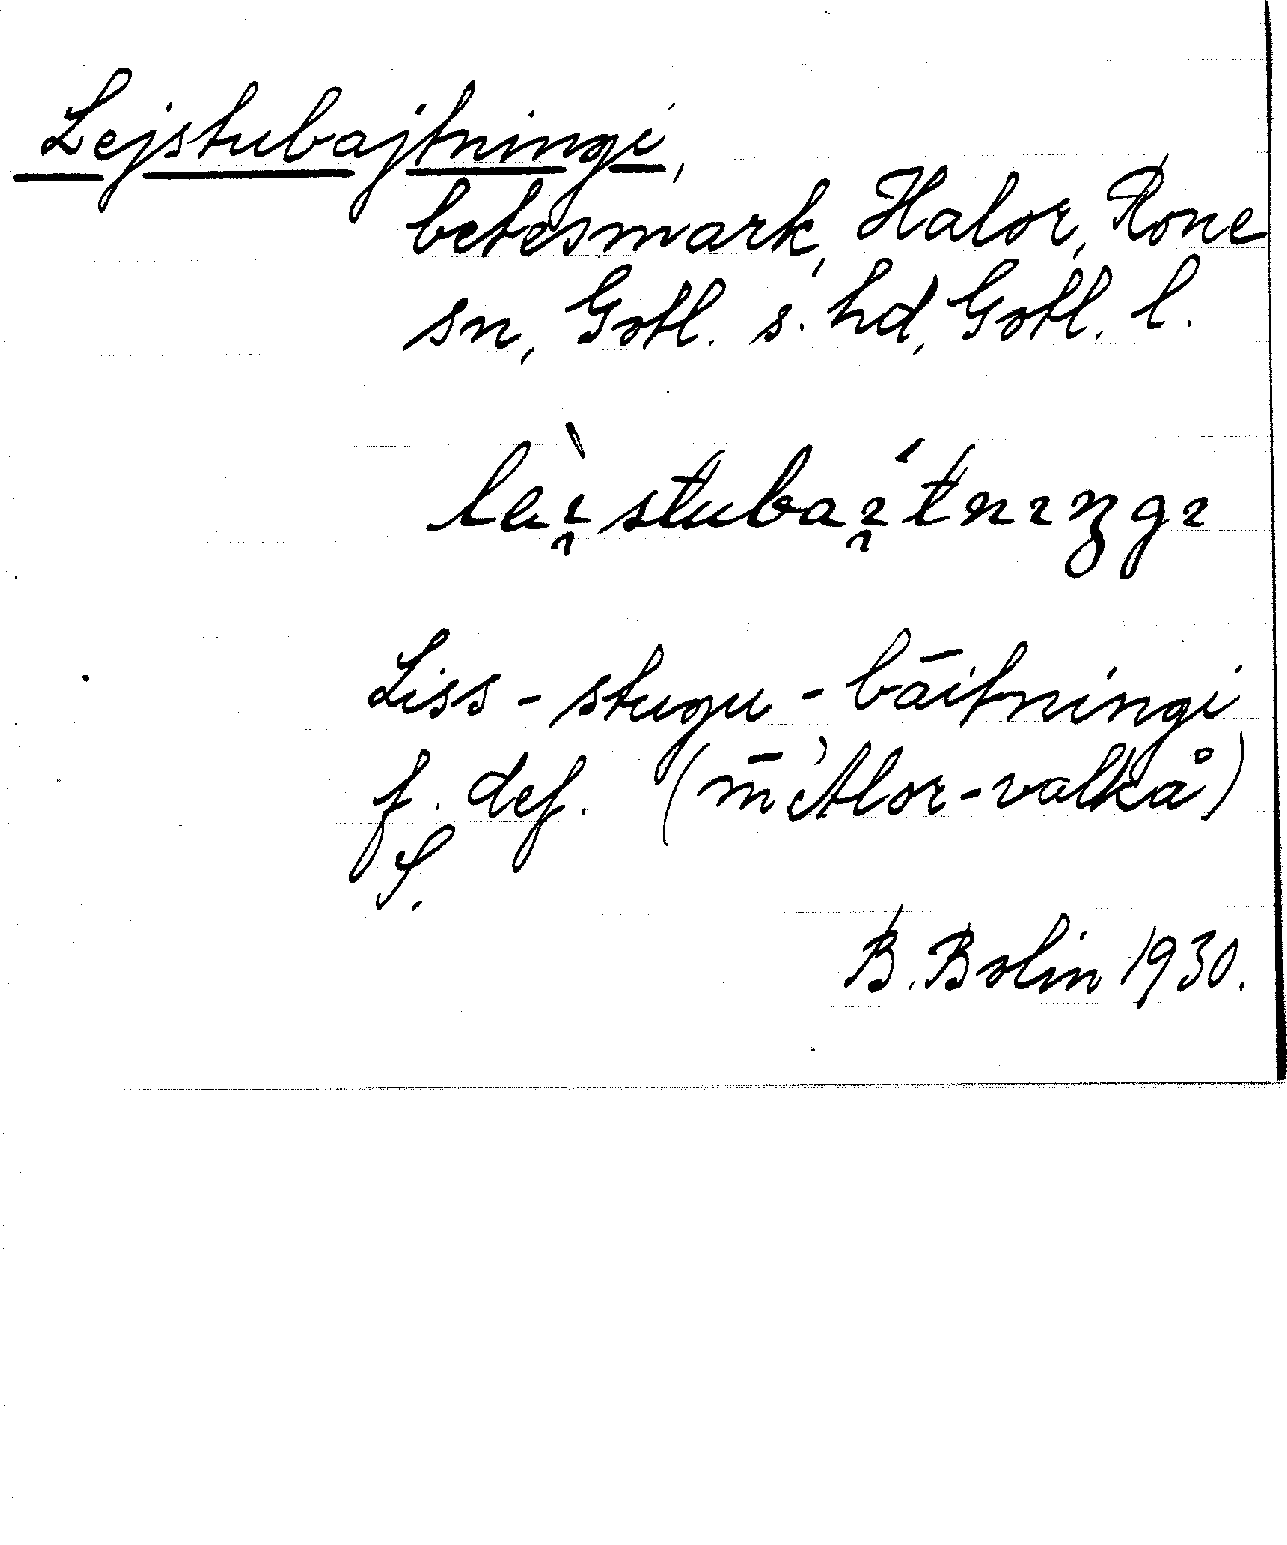 Lejstubajtningi,
betesmark, Halor, Rone
sn, Gotl. s. hd, Gotl. l.
lèi̯stubaí̯tnıŋgı
Liss-stugu-bāitningi
f. def. (m̄
S.
B. Bolin 1930.